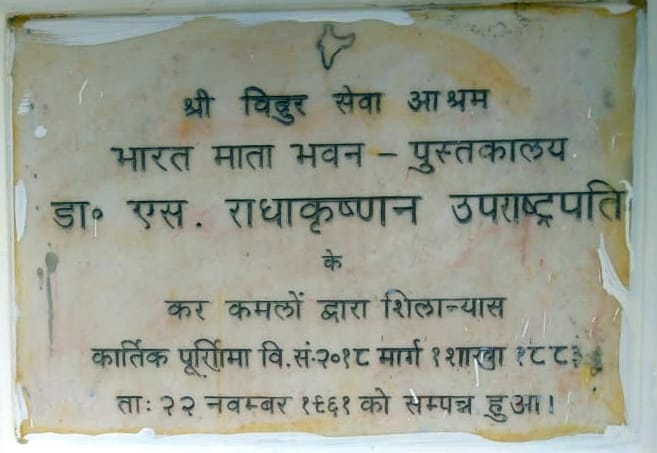 श्री विदुर सेवा आश्रम
भारत माता भवन – पुस्तकालय
डा॰ एस. राधाकृष्णन उपराष्ट्रपति
के
कर कमलों द्वारा शिलान्यास
कार्तिक पूर्णिमा वि.सं.२०१८ मार्ग १ शाखा १८८३
ताः २२ नवम्बर १९६१ को सम्पन्न हुआ।